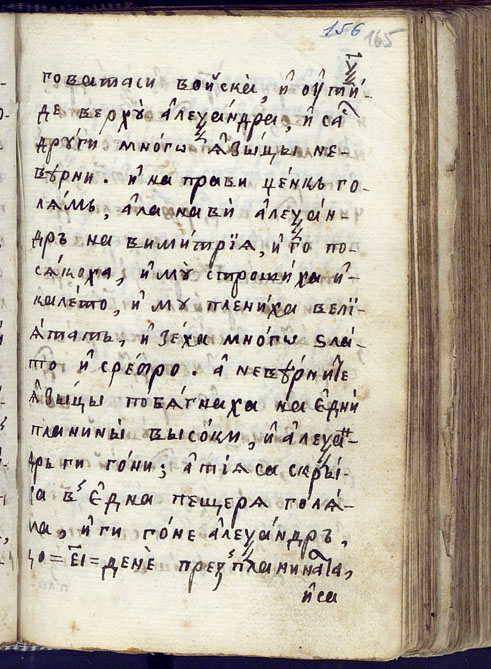 156
165
говатаси войска̀, и҆ ѹ҆ти́-
де верхꙋ̀ а҆леѯа́ндра, и҆ са
дрꙋ́ги мно́гѡ ѧ҆зы́цы не-
вѣ́рни . и҆ на прави це́нкь го-
лѧ́мь, а҆ла нави̇̀ а҆леѯа́н-
дрь на вими́трїѧ, и҆ го по-
сѧ́коха, и҆ мꙋ строши́ха и҆-
кале́то, и҆ мꙋ плени́ха велї-
ѧ́тать, и҆ зе́ха мно́гѡ ѕла́-
то и҆ сре́бро . а҆ невѣ́рните
ѧ҆зы́цы побѧ́гнаха на є҆дни̇̀
планины̀ высо́ки, и҆ а҆леѯан-
дрь ги го́ни; а҆ тїѧ са скры́-
ха в є҆дна пещерѧ голѧ́-
ма, и҆ ги го́не а҆леѯа́ндрь,
до = е҃і = денѐ през планината,
и҆ са